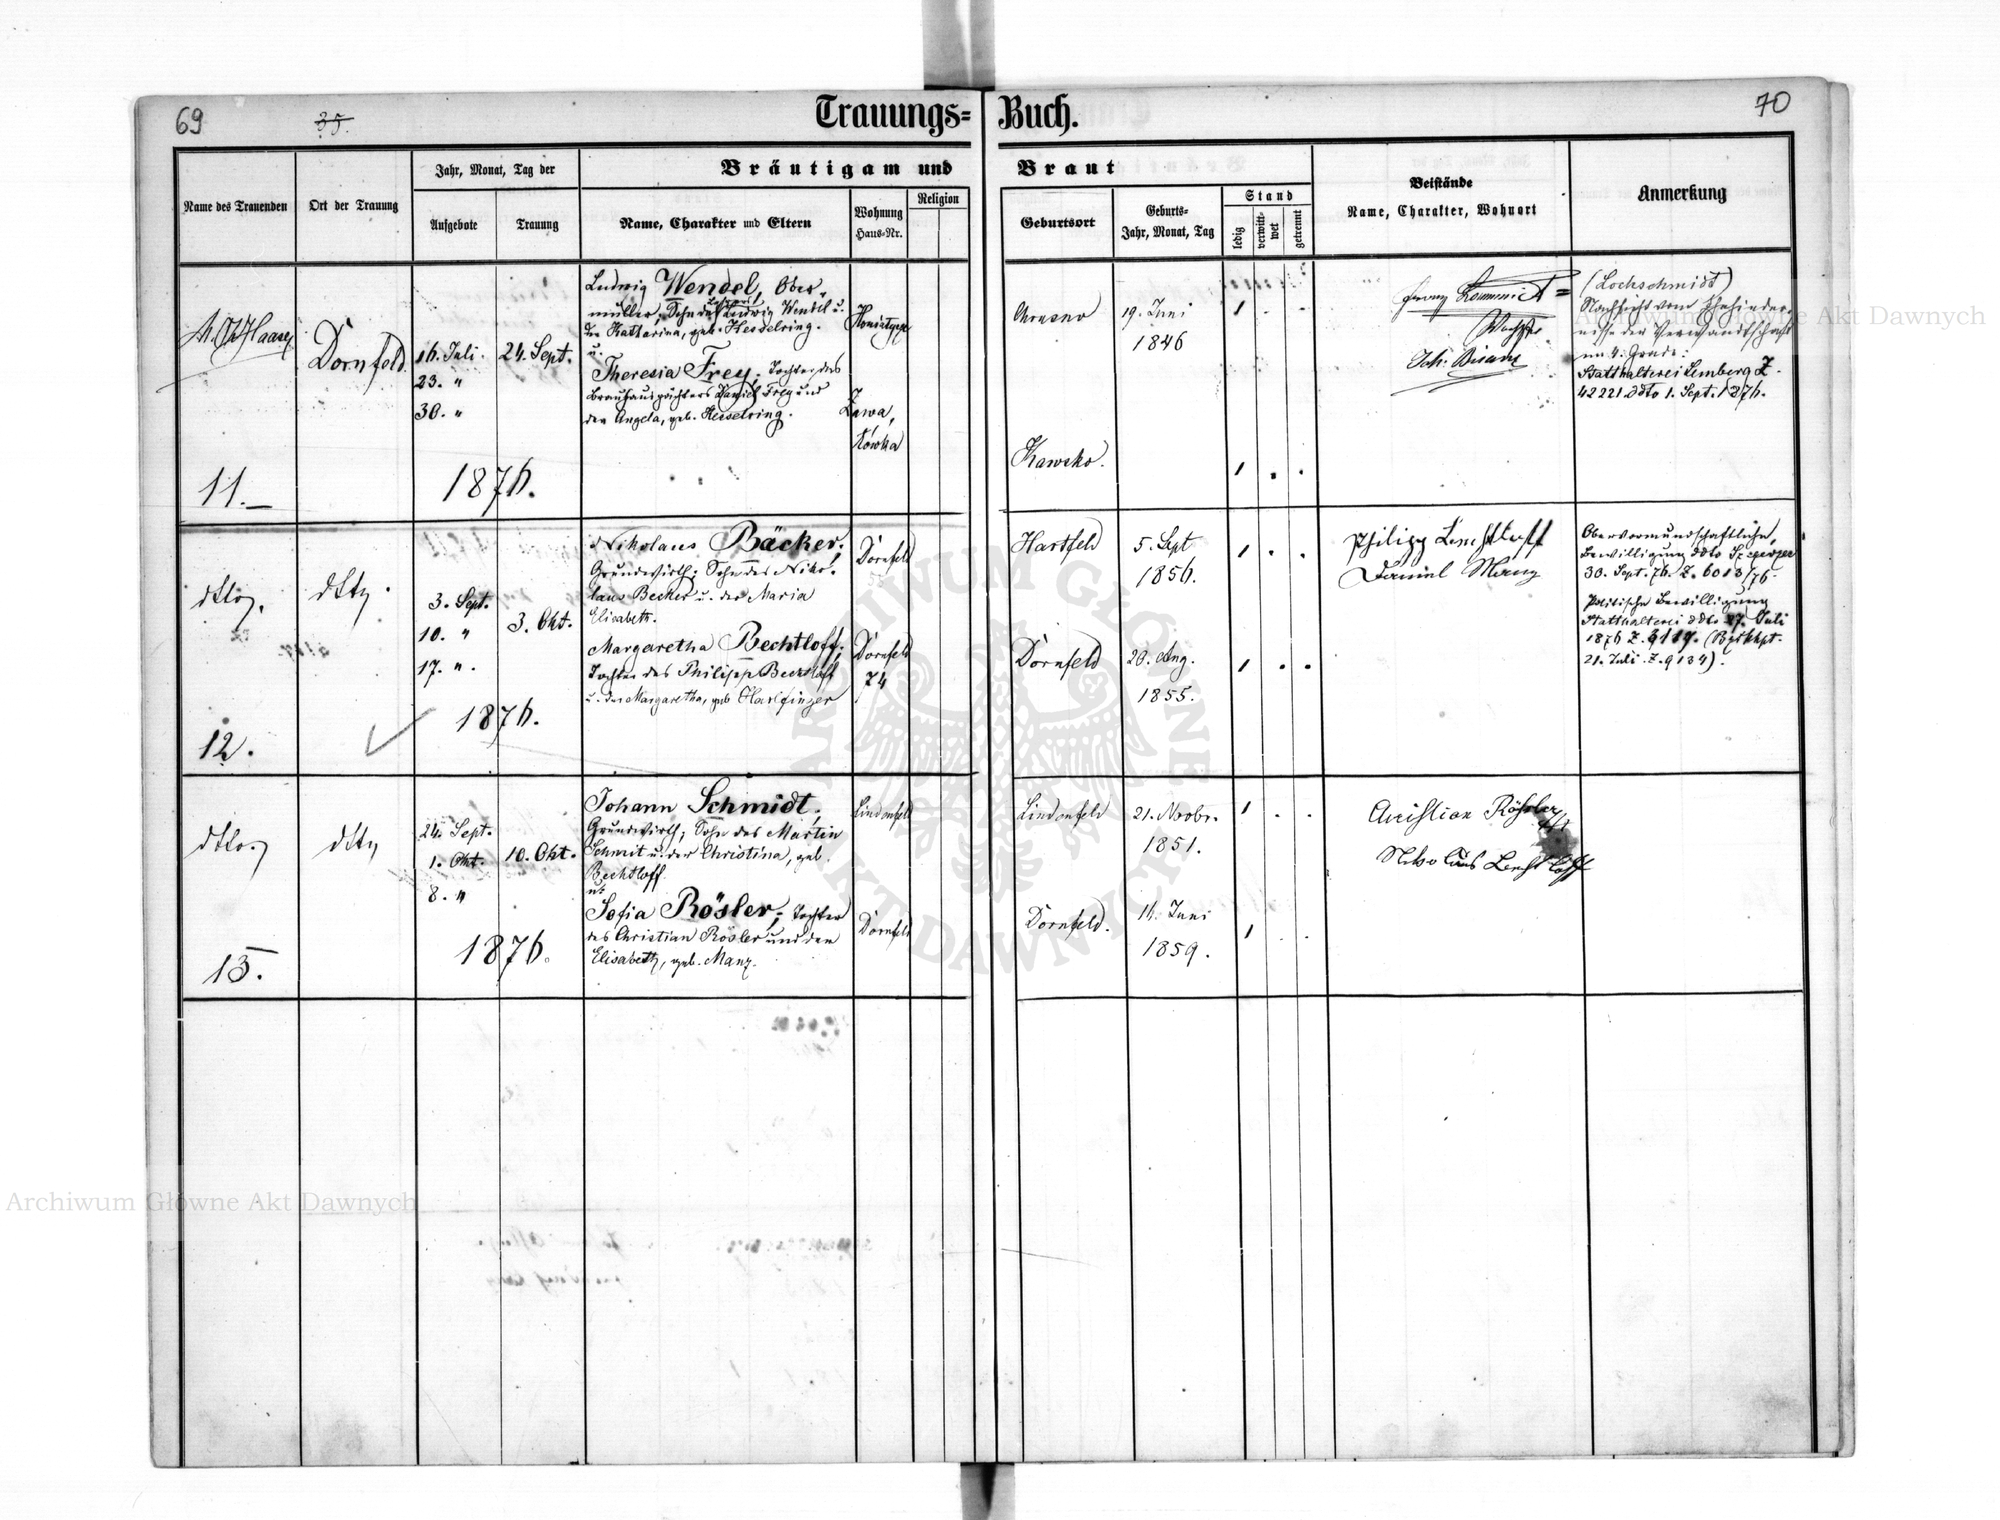 69
35.
Trauungs-Buch.
70
Bräutigam und Braut
Name des Trauenden
Ort der Trauung
Jahr, Monat, Tag der
Aufgebote
Trauung
Name, Charakter und Eltern
Wohnung
Haus-Nr.
Religion
Geburtsort
Geburts-
Jahr, Monat, Tag
Stand
ledig
verwitt-
wet
getrennt
Beistände
Name, Charakter, Wohnort
Anmerkung
Haase
Dornfeld
16. Juli.
23. "
30. "
24. Sept.
1876.
11.
Ludwig Wendel, Ober-
müller, Sohn des Ludwig Wendel u.
der Katharina, geb. Hesselring.
u.
Theresia Frey, Tochter des
Brauhauspächters Daniel Frey und
der Angela, geb. Hesselring.
19. Juni
1846
Kawsko.
(Lochschmidt)
Nachsicht vom Ehehinder-
nisse der Verwandtschaft
im 4. Grade:
Statthalterei Lemberg Z.
42221 ddto 1. Sept. 1876.
dtto.
dtto.
3. Sept.
10. "
17. "
3. Okt.
1876.
12.
Nikolaus Bäcker,
Grundwirth; Sohn des Niko-
laus Becker u. der Maria
Elisabeth.
Margaretha Bechtloff,
Tochter des Philipp Bechtloff
u. der Margaretha, geb. Harlfinger
Dornfeld
Dornfeld
74
Hartfeld
5. Sept
1856.
Dornfeld
20. Aug.
1855.
Philipp Bechtloff
Daniel Manz
Obervormundschaftliche
Bewilligung ddto
30. Sept. 76. Z. 6013/76.
Politische Bewilligung
Statthalterei ddto 17. Juli
1876 Z.
21. Juli. Z. 9134).
dtto.
dtto
24. Sept.
1. Okt.
8. "
10. Okt.
1876.
13.
Johann Schmidt,
Grundwirth; Sohn des Martin
Schmit u. der Christina, geb.
Bechtloff.
u.
Sofia Rösler, Tochter
des Christian Rösler und der
Elisabeth, geb. Manz.
Lindenfeld
Dornfeld
Lindenfeld
21. Novbr.
1851.
Dornfeld.
16. Juni
1859.
Christian Rösler
Nikolaus Bechtloff
Archiwum Główne Akt Dawnych
Archiwum Główne Akt Dawnych
ARCHIWUM GŁÓWNE AKT DAWNYCH